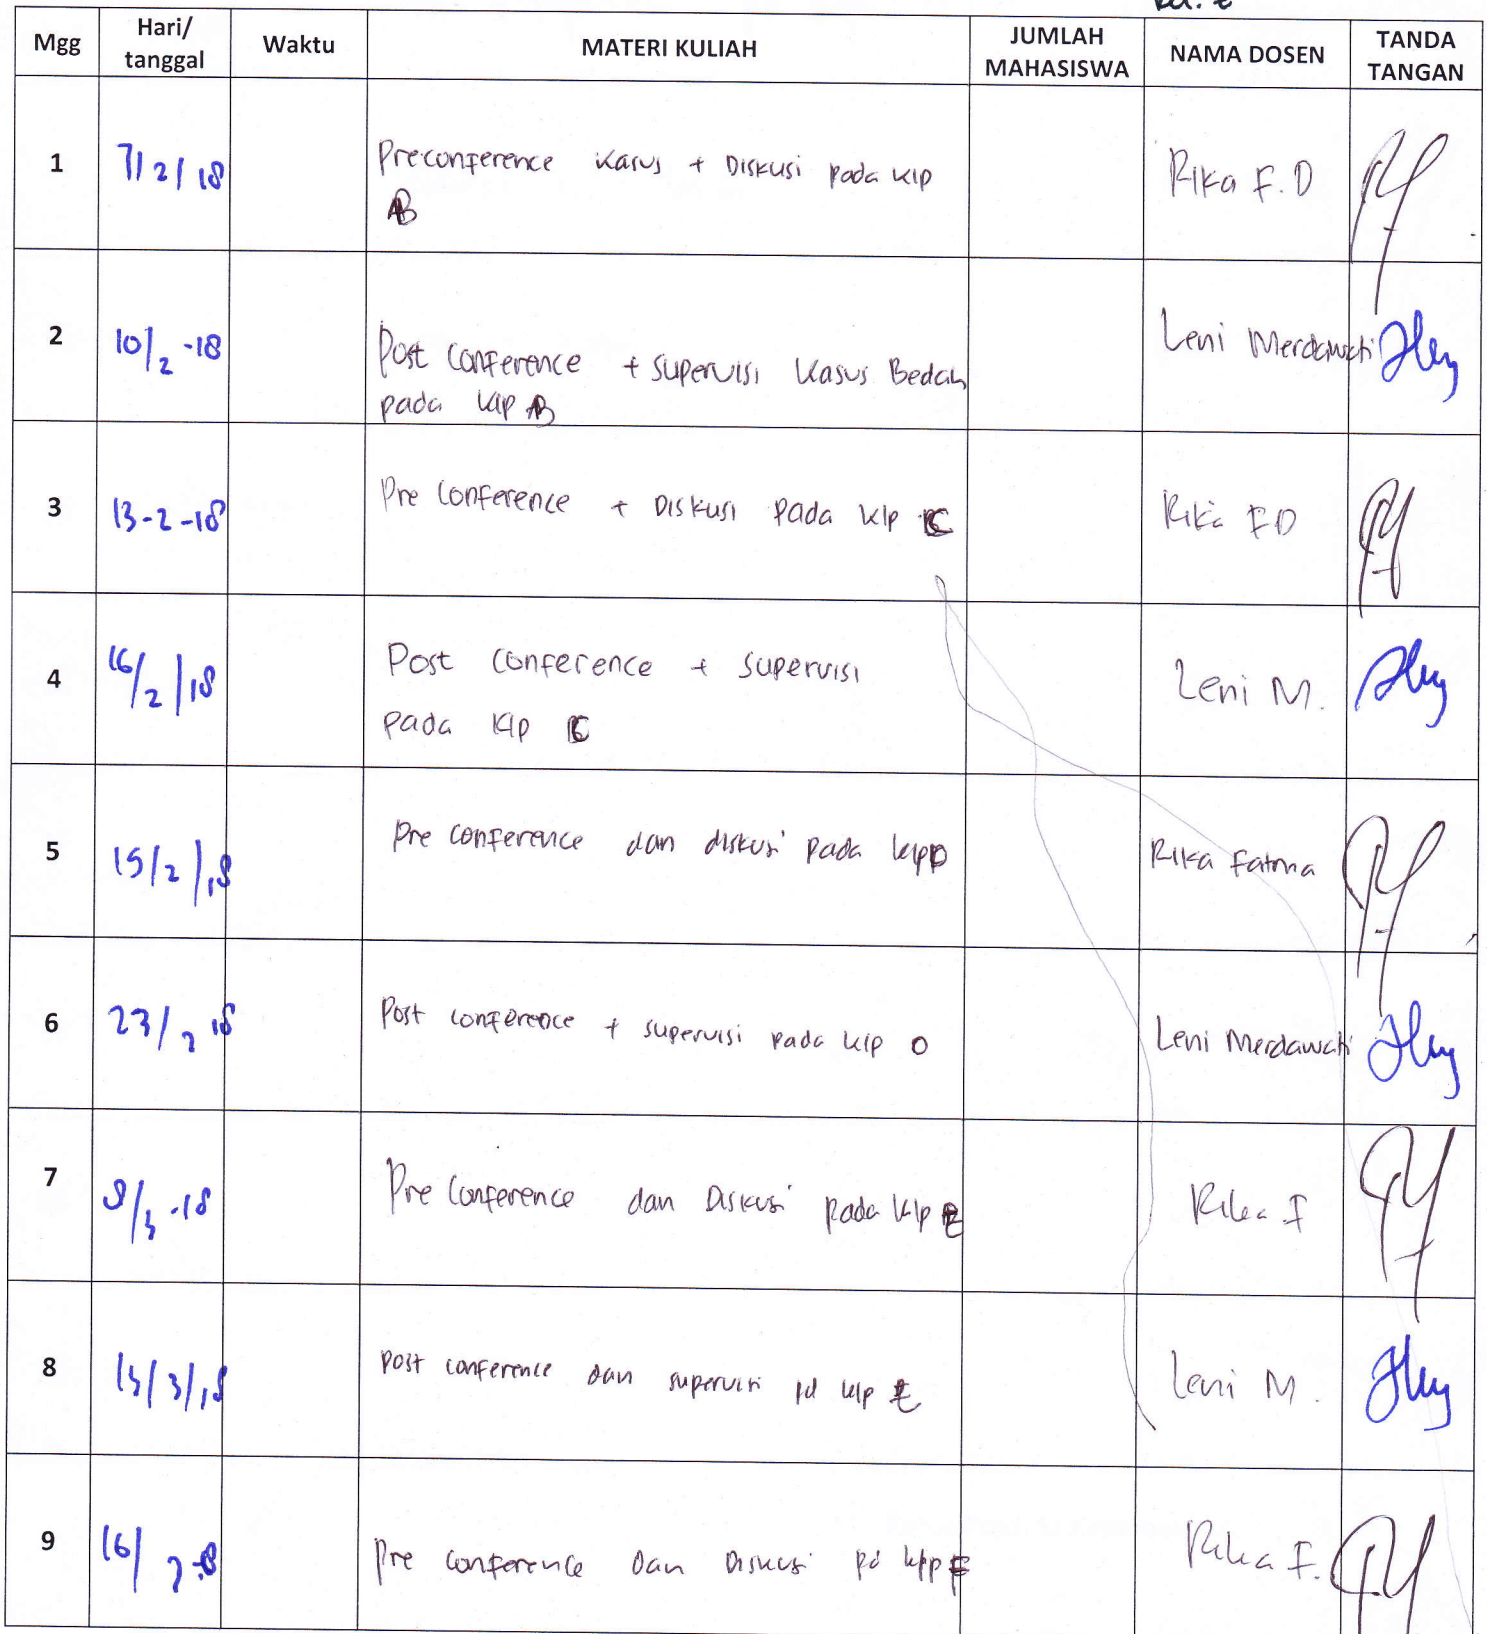 Kel. E
Mgg Hari/ tanggal Waktu MATERI KULIAH JUMLAH MAHASISWA NAMA DOSEN TANDA TANGAN
1 7/2/18 Preconference Kasus + Diskusi pada klp Rika F. D
B
2 10/2-18 Post Conference + supervisi Kasus Bedah Leni Merdawati
pada klp B
3 13-2-18 Pre Conference + Diskusi pada klp C Rika FD
4 16/2/18 Post Conference + supervisi Leni M.
pada klp C
5 15/2/18 Pre conference dan diskusi pada klp D Rika Fatma
6 23/2 18 Post conference + supervisi pada klp D Leni Merdawati
7 9/3-18 Pre Conference dan Diskusi pada klp E Rika F
8 /3/18 Post conference dan supervisi pd klp E Leni M.
9 16/3-18 Pre conference dan Diskusi pd klp F Rika F.